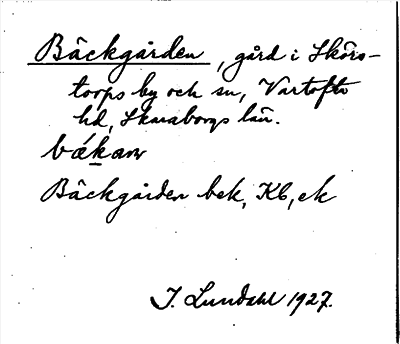 Bäckgården, gård i Skörs-
torps by och sn, Vartofta
hd, Skaraborgs län.
bǽkaɷ
Bäckgården bek, Kb, ek
I. Lundahl 1927.